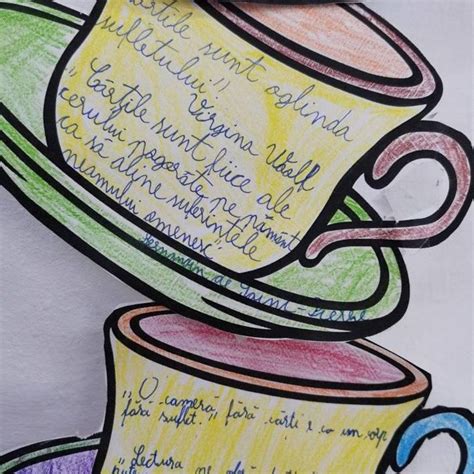 Cărțile sunt oglinda
sufletului"
Virgina Woolf
„Cărțile sunt fiice ale
cerului pogorâte pe pământ
ca să aline suferințele
neamului omenesc"
Bernandin de Saint-Pierre
„O cameră fără cărți e ca un corp
fără suflet."
„Lectura ne